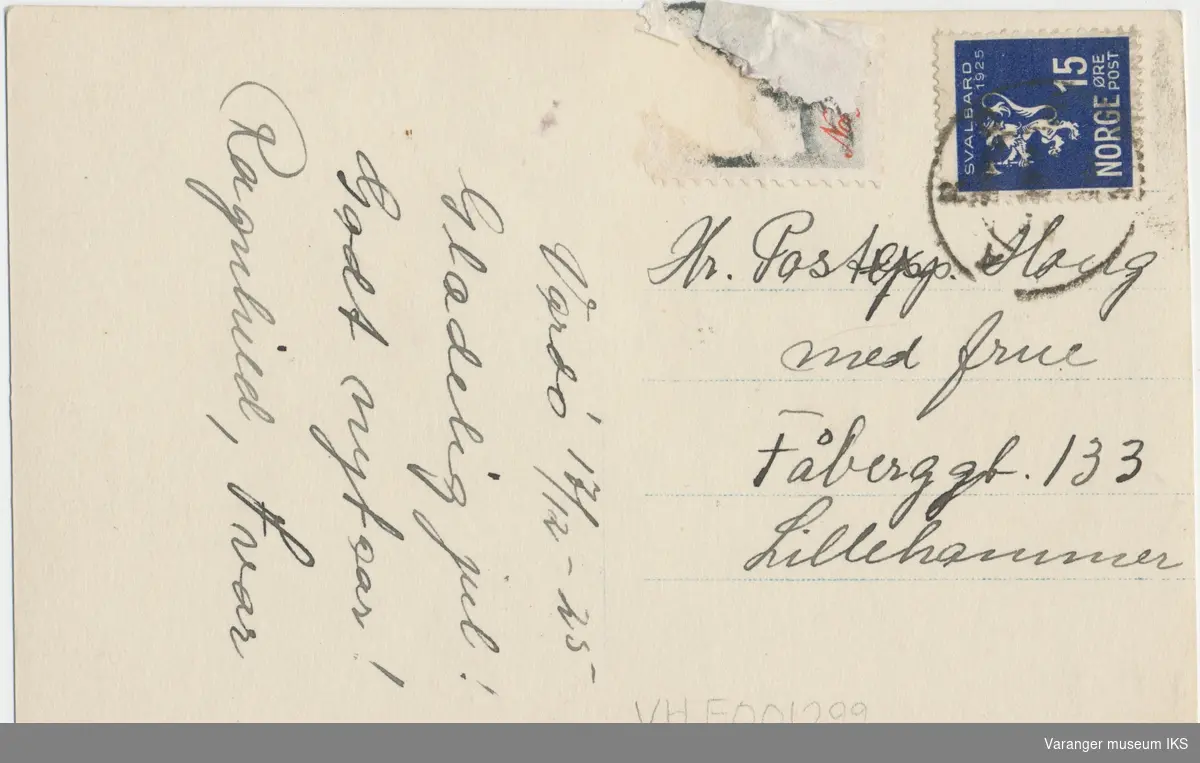 Vardö 17/12 - 25
Gladelig jul!
Godt nytaar!
Ragnhild, Ivar
SVALBARD
1925
15
ØRE
NORGE POST
Hr. Postexp. Haug
med frue
Fåberggt. 133
Lillehammer
VH F001299
Varanger museum IKS